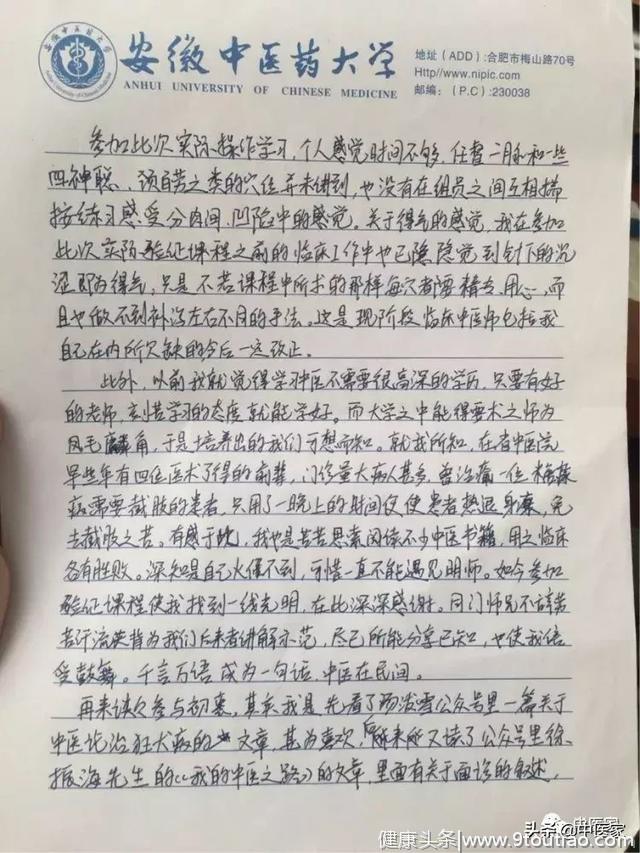 安徽中医药大学
ANHUI UNIVERSITY OF CHINESE MEDICINE
地址（ADD）:合肥市梅山路70号
Http//www.nipic.com
邮编：（P.C）:230038
参加此次实际操作学习，个人感觉时间不够，任督二脉和一些
四神聪、颈百劳之类的穴位并未讲到，也没有在组员之间互相揣
按练习感受分肉间，凹陷中的感觉。关于得气的感觉，我在参加
此次实际验证课程之前的临床工作中也已隐隐觉到针下的沉
涩即为得气，只是不若课程中所求的那样每次都要精专、用心，而
且也做不到补泻左右不同的手法。这是现阶段临床中医师包括我
自己在内所欠缺的今后一定改正。
此外，以前我就觉得学习中医不需要很高深的学历，只要有好
的老师，刻苦学习的态度就能学好。而大学之中能得要术之师为
凤毛麟角，于是培养出的我们可想而知。就我所知，在省中医院
早些年有四位医术了得的前辈，门诊量大病人甚多，曾治痛一位
病需要截肢的患者，只用了一晚上的时间仅使患者热返身，免
去截肢之苦。有感于此，我也是苦苦思索阅读不少中医书籍，用之临床
各有胜败。深知是自己火候不到，可惜一直不能遇见明师。如今参加
验证课程使我找到一线光明，在此深深感谢。同门师兄不辞劳
苦汗流浃背为我们后来者讲解示范，尽己所能分享已知，也使我倍
受鼓舞。千言万语成为一句话，中医在民间。
再来谈谈参与初衷。其实我是先看了汤泼雪公众号里一篇关于
中医论治狂犬病的文章，甚为喜欢，后来又读了公众号里徐
振海先生的《我的中医之路》的文章，里面有关于面诊的叙述，
头条@中医家
健康头条|www.9toutiao.com